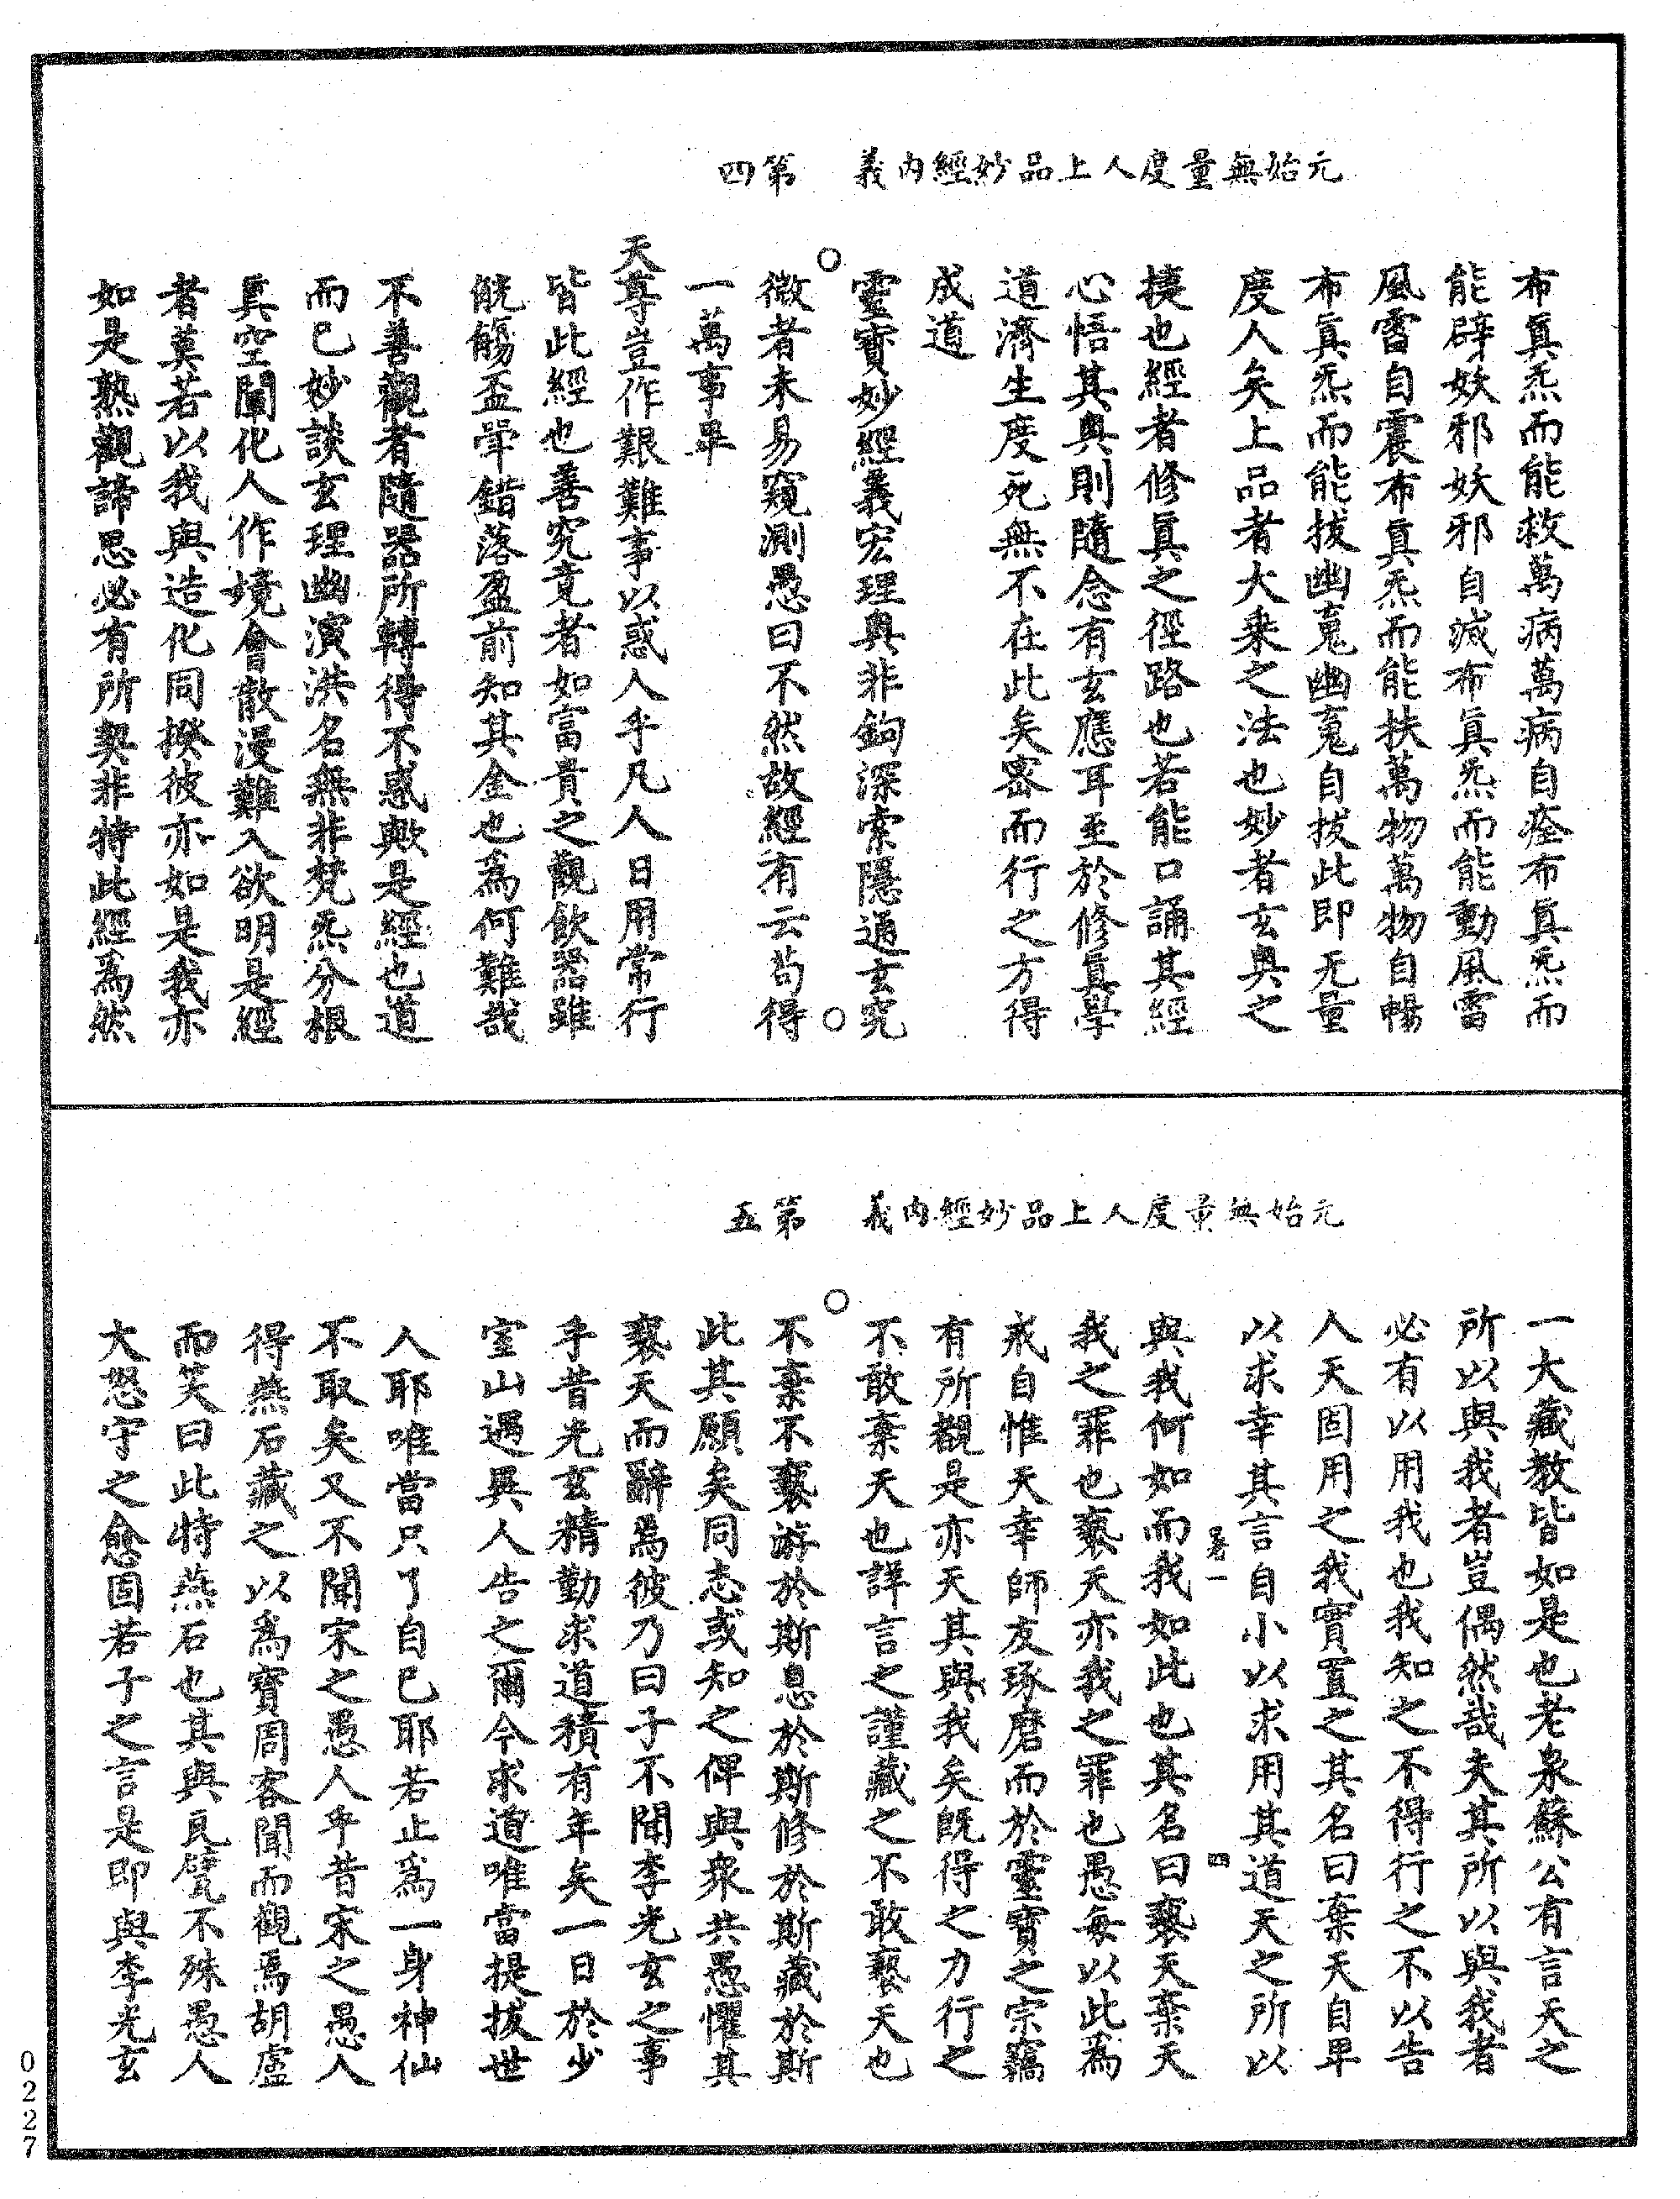 元始無量度人上品妙經內義　第四
布真炁而能救萬病萬病自痊布真炁而
能辟妖邪妖邪自滅布真炁而能動風雷
風雷自震布真炁而能扶萬物萬物自暢
布真炁而能拔幽䰟幽䰟自拔此即无量
度人矣上品者大乘之法也妙者玄奥之
捷也經者修真之徑路也若能口誦其經
心悟其奥則隨念有玄應耳至於修真學
道濟生度死無不在此矣密而行之方得
成道
○靈寶妙經義宏理奥非鉤深索隱通玄究
微者未易窺測愚曰不然故經有云苟得○
一萬事畢
天尊豈作艱難事以惑人乎凡人日用常行
皆此經也善究竟者如富貴之觀飲器雖
觥觴盃斝錯落盈前知其金也為何難哉
不善觀者隨器所轉得不惑歟是經也道
而已妙談玄理幽演洪名無非梵炁分根
真空闡化人作境會散漫難入欲明是經
者莫若以我與造化同揆彼亦如是我亦
如是熟觀諦思必有所契非特此經為然
元始無量度人上品妙經內義　第五
一大藏教皆如是也老泉蘇公有言天之
所以與我者豈偶然哉夫其所以與我者
必有以用我也我知之不得行之不以告
人天固用之我實置之其名曰棄天自卑
以求幸其言自小以求用其道天之所以
卷一　四
與我何如而我如此也其名曰褻天棄天
我之罪也褻天亦我之罪也愚每以此為
戒自惟天幸師友琢磨而於靈寶之宗竊
有所觀是亦天其與我矣既得之力行之
不敢棄天也詳言之謹藏之不敢褻天也
○不棄不褻游於斯息於斯修於斯藏於斯
此其願矣同志或知之俾與衆共愚懼其
褻天而辭為彼乃曰子不聞李光玄之事
乎昔光玄精勤求道積有年矣一日於少
室山遇異人告之爾今求道唯當提拔世
人耶唯當只了自己耶若止為一身神仙
不取矣又不聞宋之愚人乎昔宋之愚人
得燕石藏之以為寶周客聞而觀焉胡盧
而笑曰此特燕石也其與瓦甓不殊愚人
大怒守之愈固若子之言是即與李光玄
0227